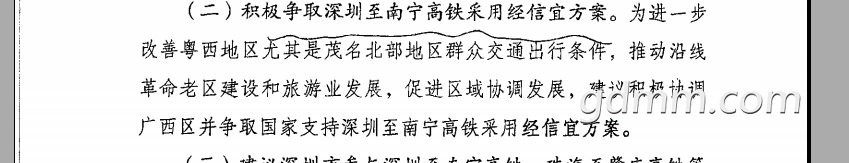 （二）积极争取深圳至南宁高铁采用经信宜方案。为进一步
改善粤西地区尤其是茂名北部地区群众交通出行条件，推动沿线
革命老区建设和旅游业发展，促进区域协调发展，建议积极协调
广西区并争取国家支持深圳至南宁高铁采用经信宜方案。
gdmm.com